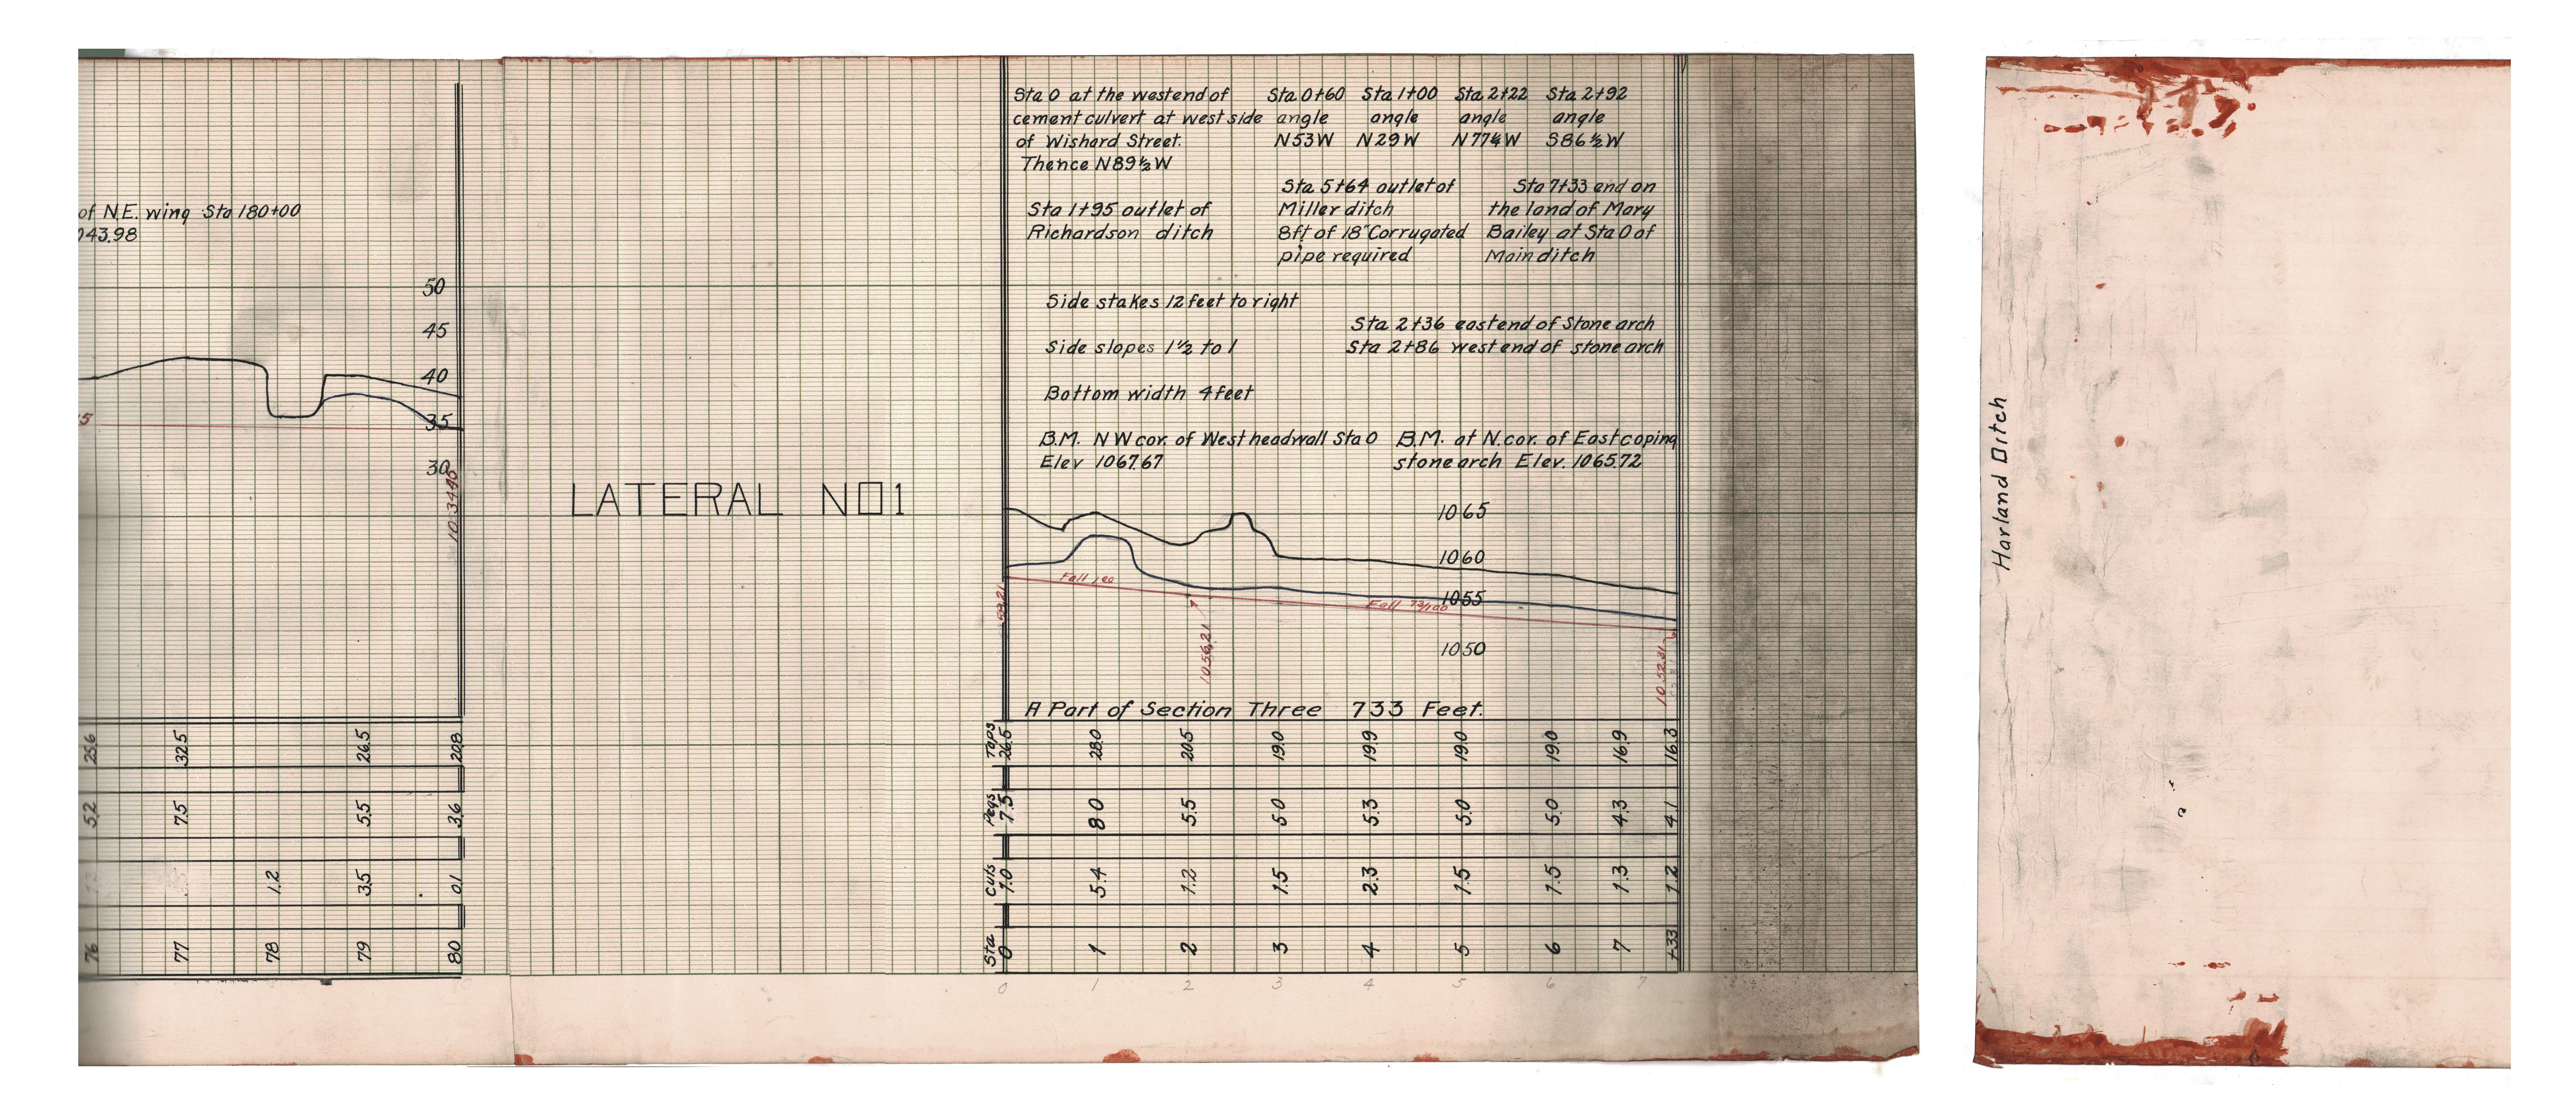 of N.E. wing Sta 180+00
043.98
50
45
40
35
30
1034.40
25.6 32.5 26.5 20.8
5.2 7.5 5.5 3.6
1.2 3.5 0.1
76 77 78 79 80
LATERAL NO1
Sta 0 at the west end of
cement culvert at west side
of Wishard Street.
Thence N89½W
Sta 0+60
angle
N53W
Sta 1+00
angle
N29W
Sta 2+22
angle
N77¼W
Sta 2+92
angle
S86½W
Sta 1+95 outlet of
Richardson ditch
Sta 5+64 outlet of
Miller ditch
8ft of 18" Corrugated
pipe required
Sta 7+33 end on
the land of Mary
Bailey at Sta 0 of
Main ditch
Side stakes 12 feet to right
Sta 2+36 east end of Stone arch
Sta 2+86 west end of stone arch
Side slopes 1½ to 1
Bottom width 4 feet
B.M. NW cor. of West headwall Sta 0
Elev 1067.67
B.M. at N. cor. of East coping
stone arch Elev. 1065.72
1065
1060
1055
1050
Fall 1.00
Fall 73/100
58.21
1056.21
1052.31
A Part of Section Three 733 Feet.
Tops 26.5 28.0 20.5 19.0 19.9 19.0 19.0 16.9 16.3
Pegs 7.5 8.0 5.5 5.0 5.3 5.0 5.0 4.3 4.1
Cuts 1.0 5.4 1.2 1.5 2.3 1.5 1.5 1.3 1.2
Sta 0 1 2 3 4 5 6 7 +33
0 1 2 3 4 5 6 7
Harland Ditch